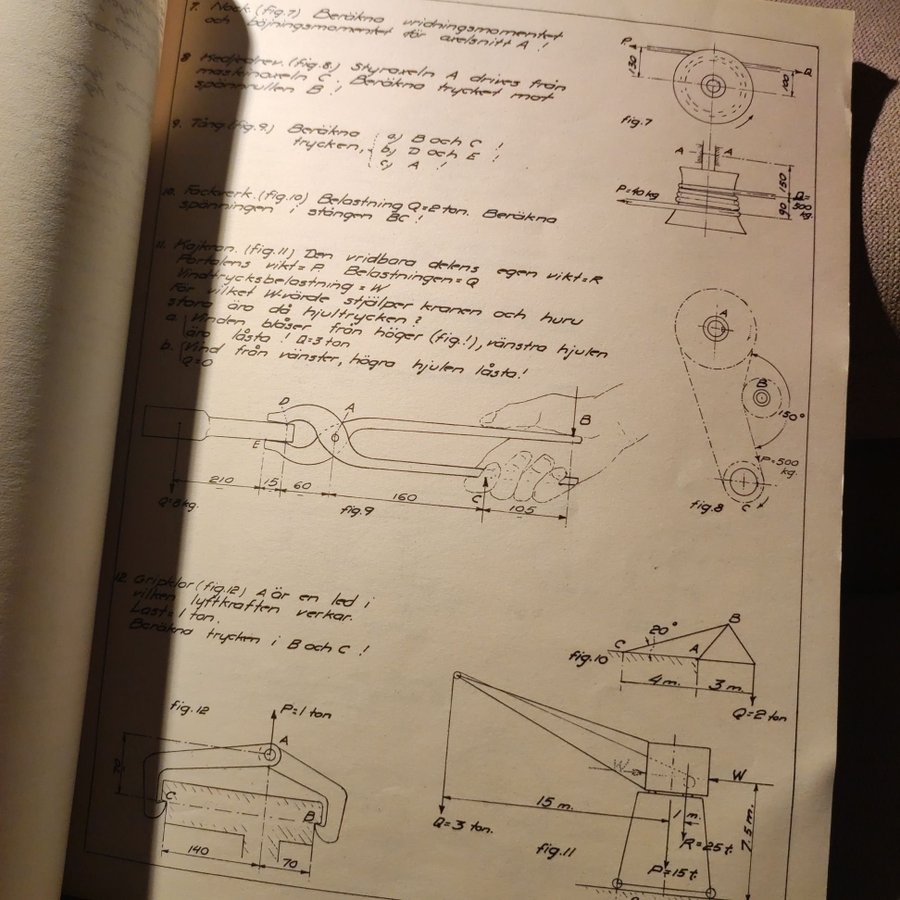 7. Nock (fig.7) Beräkna vridningsmomentet
och böjningsmomentet för axelsnitt A !
8 Kedjedrev. (fig.8.) Styraxeln A drives från
maskinaxeln C. Beräkna trycket mot
spännrullen B !
9. Tång (fig.9.) Beräkna
trycken,
a) B och C !
b) D och E !
c) A !
10. Fackverk. (fig.10) Belastning Q=2 ton. Beräkna
spänningen i stången BC !
11. Kajkran. (fig.11) Den vridbara delens egen vikt=R
Portalens vikt=P Belastningen=Q
Vindtrycksbelastning=W
För vilket W värde stjälper kranen och huru
stora äro då hjultrycken?
a. Vinden blåser från höger (fig.!), vänstra hjulen
äro låsta ! Q=3 ton
b. Vind från vänster, högra hjulen låsta!
Q=0
12. Gripklor (fig.12) A är en led i
vilken lyftkraften verkar.
Last=1 ton.
Beräkna trycken i B och C !
P
130
Q
100
fig.7
A
A
P=40 kg
150
90
kg.
A
B
150°
P=500
kg.
C
fig.8
D
A
B
E
C
210
15
60
160
105
Q=8kg.
fig.9
B
20°
C
A
fig.10
4 m.
3 m.
Q=2 ton
fig.12
P=1 ton
A
70
C
B
140
70
W
W
15 m.
1 m.
7.5 m.
Q=3 ton.
R=25t.
fig.11
P=15t.